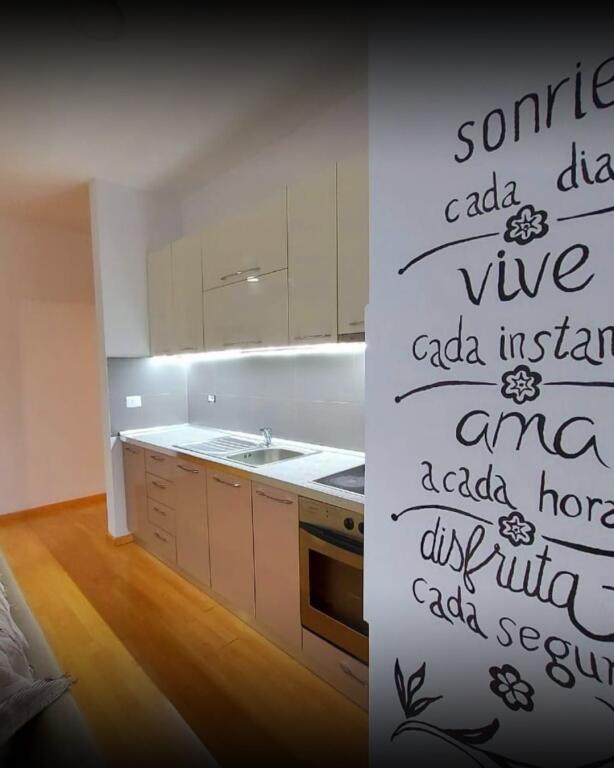 sonrie
cada dia
vive
cada instan
ama
acada hora
disfruta
cada segun